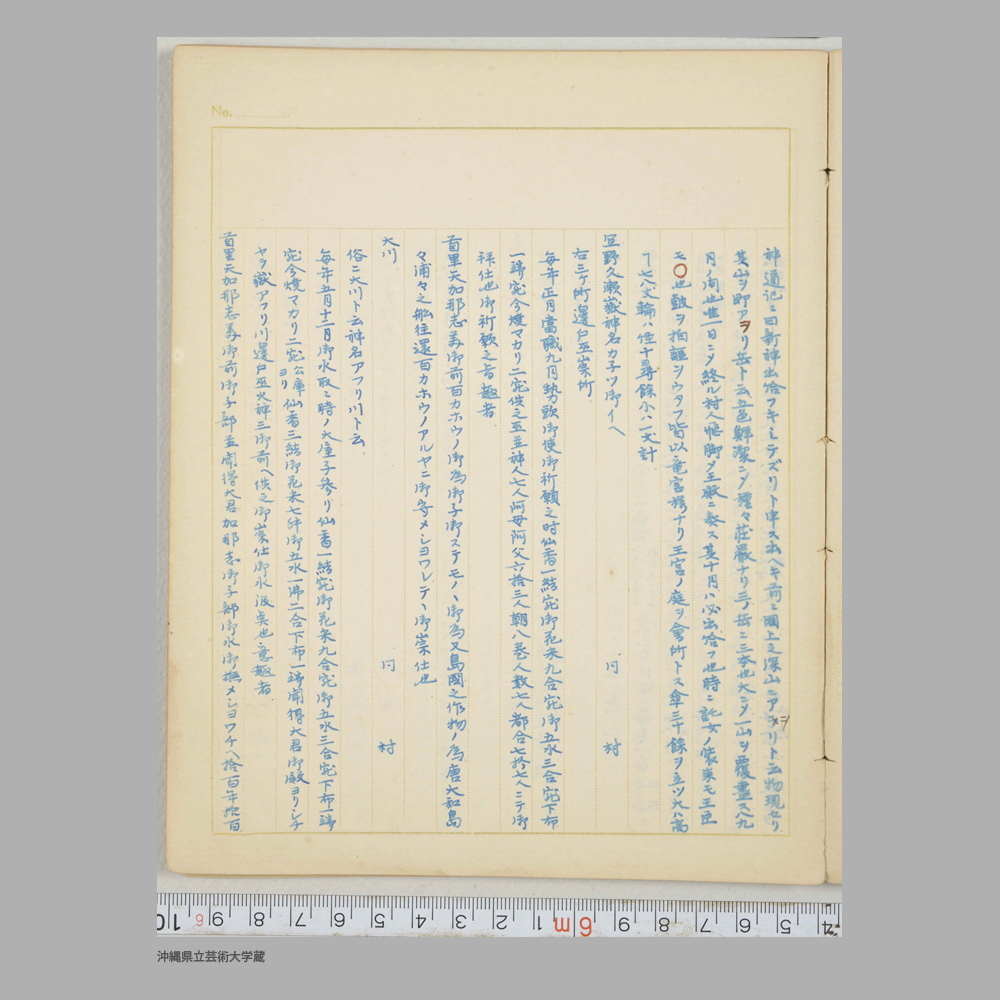 No.
神道記ニ曰新神出給フキミテズリト申ス出ヘキ前ニ國上之深山ニアヲリト云物現セリ
メヲ
其山ヲ即アヲリ岳ト云五色鮮潔ニシテ種々荘嚴ナリ三ノ岳ニ三本也大ニシテ一山ヲ覆盡ス八九
月ノ間也唯一日ニシテ終ル村人飛脚シテ王殿ニ奏ス其十月ハ必出給フ也時ニ託女ノ装束モ王臣
モ〇也鼓ヲ拍謳ヲウタフ皆以竜宮様ナリ王宮ノ庭ヲ會所トス傘三十餘ヲ立ツ大ハ高
丁七八丈輪ハ径十尋餘小ハ一丈計
宜野久瀬嶽神名カ子ツ御イヘ 同 村
右三ヶ所邊戸巫崇所
毎年正月當職九月勢頭御使御祈願之時仙香一結宛御花米九合宛御五水三合宛下布
一端宛今焼マカリ二宛供之巫並神人七人阿母阿父六拾三人朝八巻人数七人都合七拾七人ニテ御
拝仕也御祈願之旨趣者
首里天加那志美御前百カホウノ御為御子御ステモノヽ御為又島國之作物ノ為唐大和島
々浦々之船往還百カホウノアルヤニ御守メシヨワレテヽ御崇仕也
大川 同 村
俗ニ大川ト云神名アフリ川ト云
毎年五月十二月御水取ニ時ノ大屋子参リ仙香一結宛御花米九合宛御五水三合宛下布一端
宛今焼マカリ二宛公庫ヨリ仙香三結御花米七升御五水一沸二合下布一端聞得大君御殿ヨリシテ
ヤラ嶽アフリ川邊戸巫火神三御前ヘ供之御崇仕御水汲矣也意趣者
首里天加那志美御前御子部並聞得大君加那志御子部御水御撫メシヨワチヘ拾百年拾百
10 9 8 7 6 5 4 3 2 1 6m 9 8 7 6 5 4
沖縄県立芸術大学蔵